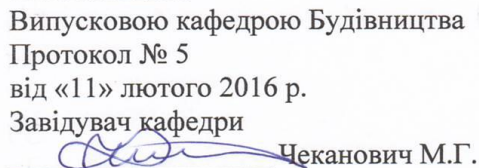 Випусковою кафедрою Будівництва
Протокол № 5
від «11» лютого 2016 р.
Завідувач кафедри
Чеканович М.Г.